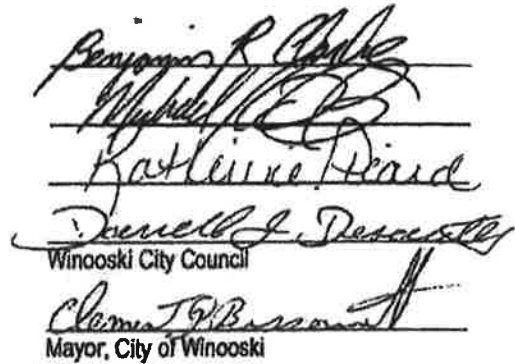 Benjamin R
Michael
Katherine Picard
Darrell J. Desautels
Winooski City Council
Clement
Mayor, City of Winooski